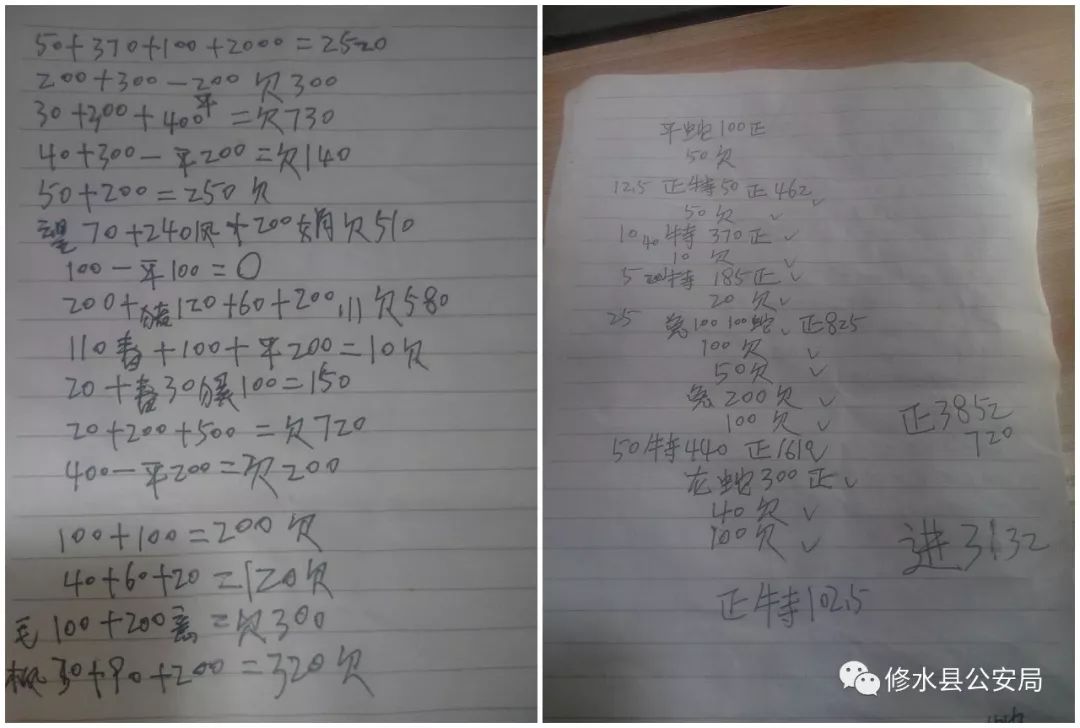 50+370+100+2000=2520
200+300-200欠300
30+300+400平=欠730
40+300-平200=欠140
50+200=250欠
70+240欠+200 欠510
100-平100=0
200+ 120+60+200 欠580
110 +100+平200=10欠
20+ 30 100=150
20+200+500=欠720
400-平200=欠200
100+100=200欠
40+60+20=120欠
毛100+200 =欠300
30+90+200=320欠
平蛇100正
50欠
12.5 正特50正462
50欠✓
10 40特370正✓
10欠✓
5 20特185正✓
20欠✓
25 兔100 100蛇 正825
100欠✓
50欠✓
兔200欠✓
100欠✓
50特440 正1612
龙蛇300正✓
40欠✓
100欠✓
正3852
720
进3132
正特102.5
修水县公安局